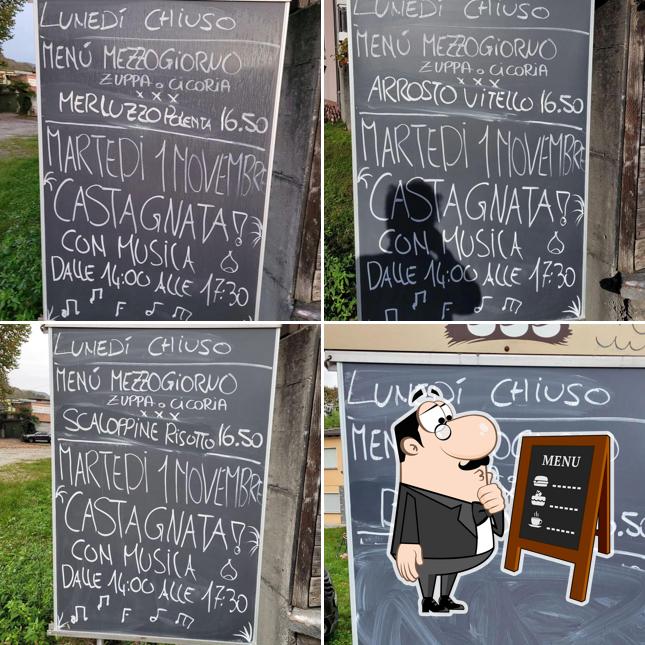 LUNEDÍ CHIUSO
MENÚ MEZZOGIORNO
ZUPPA o CICORIA
x x x
MERLUZZO POLENTA 16.50
MARTEDÌ 1 NOVEMBRE
"CASTAGNATA!"
CON MUSICA
DALLE 14:00 ALLE 17:30
F
LUNEDÍ CHIUSO
MENÚ MEZZOGIORNO
ZUPPA o CICORIA
x x x
ARROSTO VITELLO 16.50
MARTEDÌ 1 NOVEMBRE
"CASTAGNATA!"
CON MUSICA
DALLE 14:00 ALLE 17:30
LUNEDÍ CHIUSO
MENÚ MEZZOGIORNO
ZUPPA o CICORIA
x x x
SCALOPPINE RISOTTO 16.50
MARTEDÌ 1 NOVEMBRE
"CASTAGNATA!"
CON MUSICA
DALLE 14:00 ALLE 17:30
F
LUNEDÍ CHIUSO
MENU